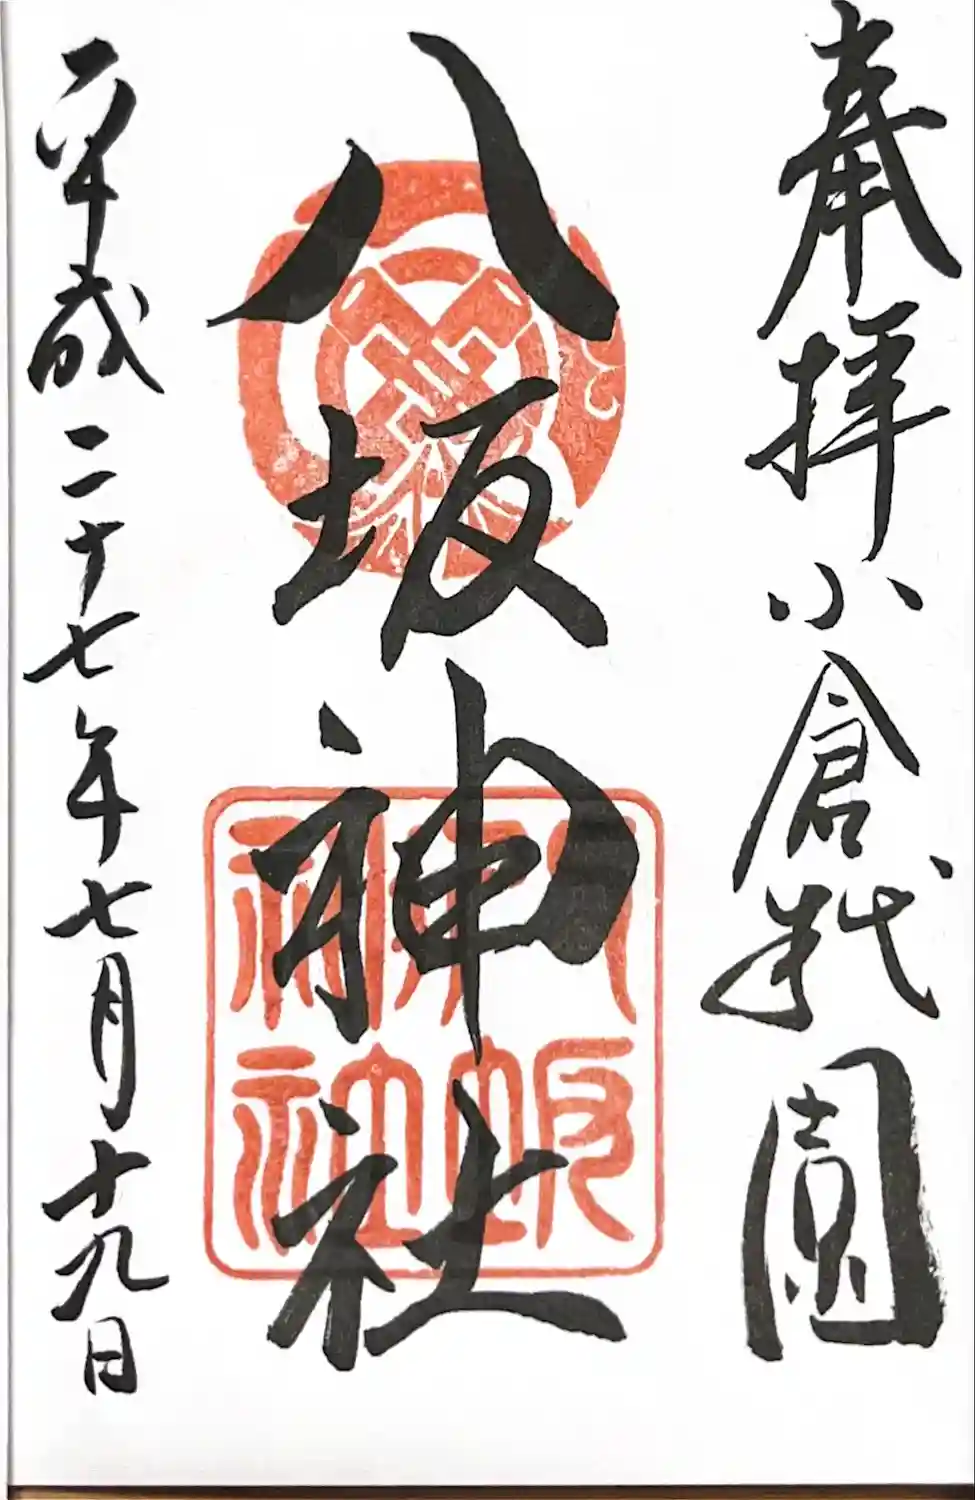 奉拝小倉祇園
八坂神社
八坂神社
平成二十七年七月十九日